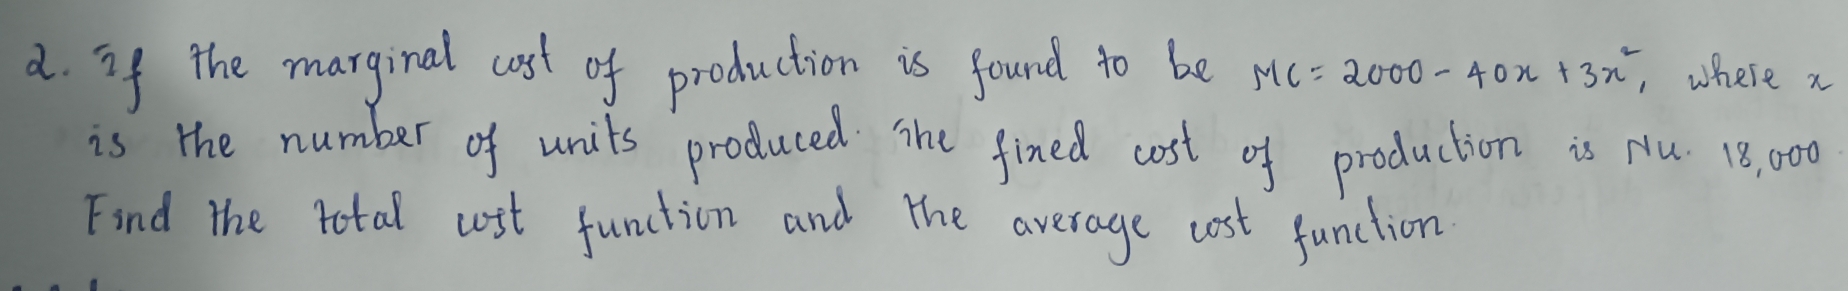 2. If the marginal cost of production is found to be MC = 2000 - 40x + 3x², where x
is the number of units produced. The fixed cost of production is Nu. 18,000
Find the total cost function and the average cost function.